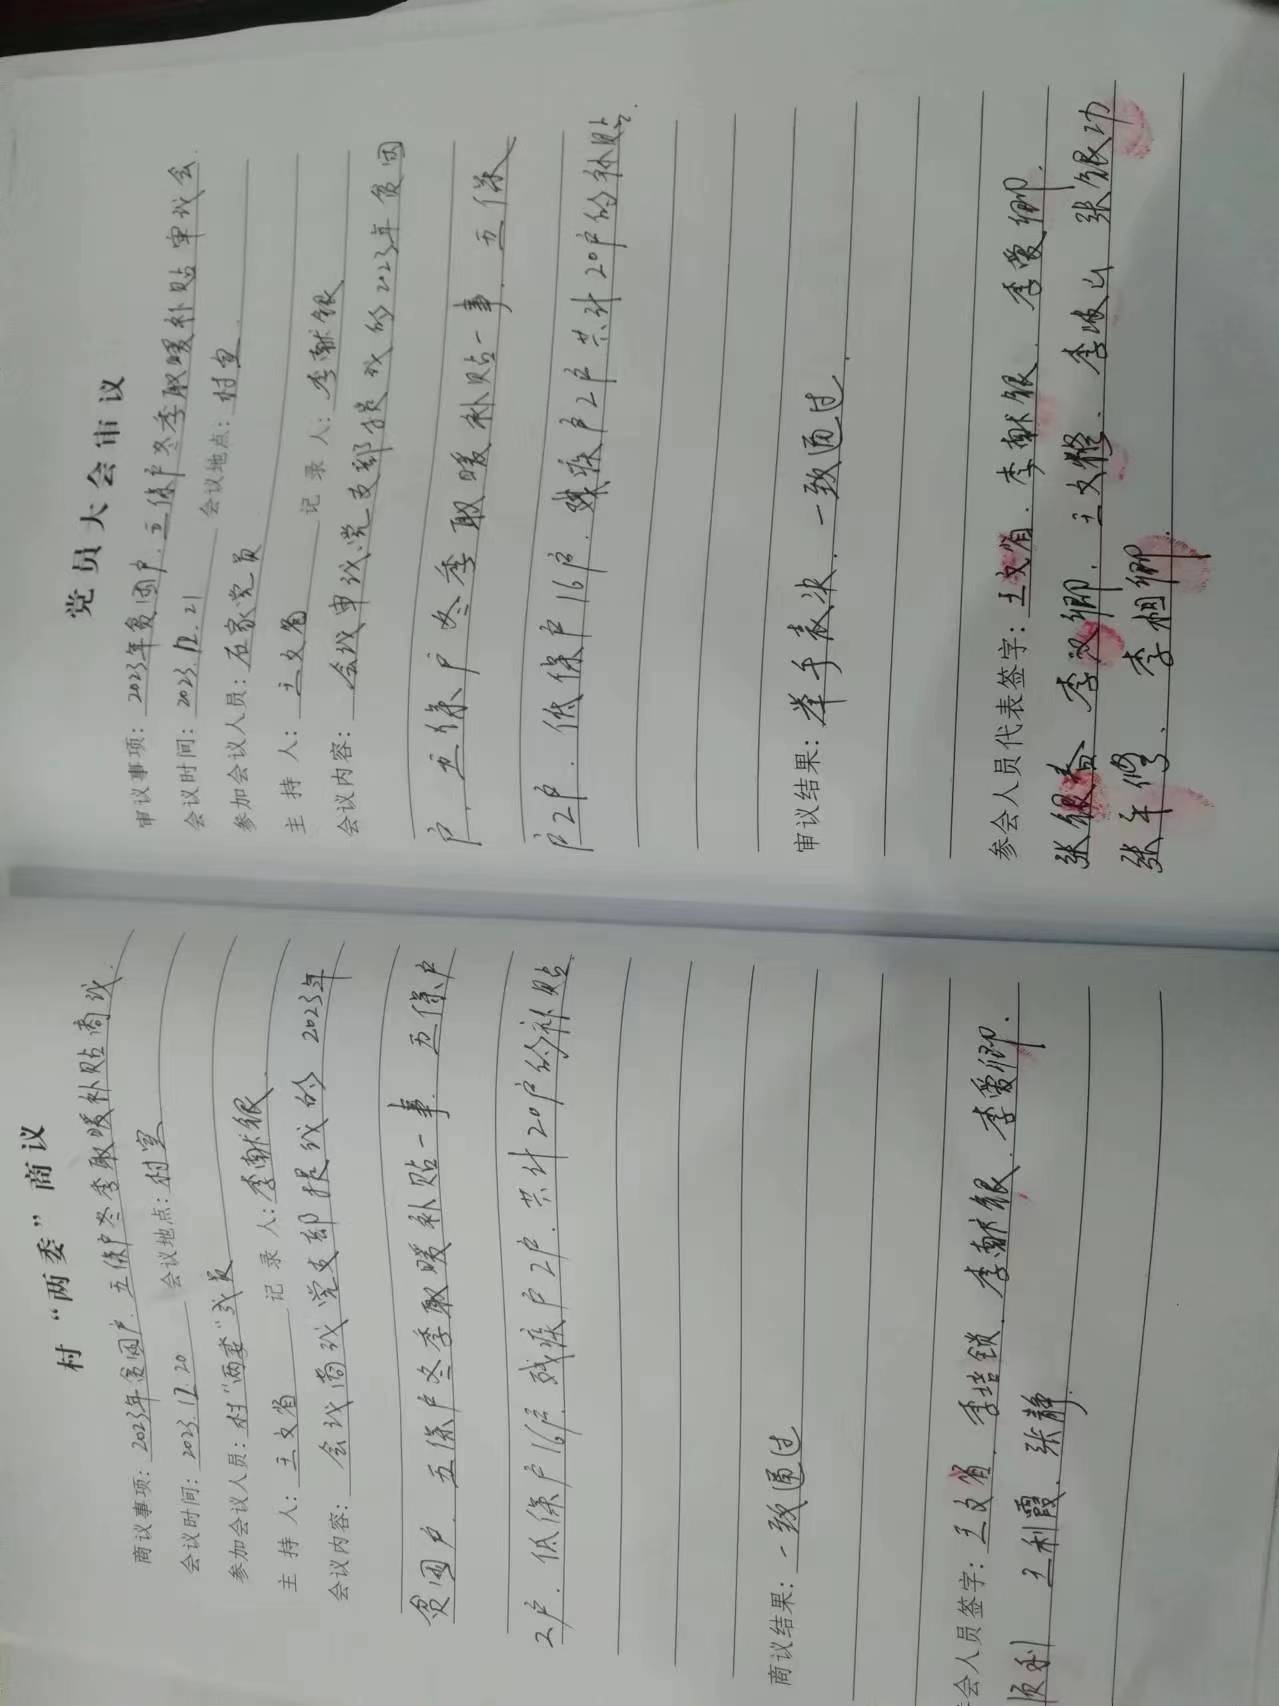 村“两委”商议
商议事项：2023年贫困户．五保户冬季取暖补贴商议．
会议时间：2023.12.20 会议地点：村室
参加会议人员：村“两委”成员
主持人：王文省 记录人：李献银
会议内容：会议商议党支部提议的2023年
贫困户．五保户冬季取暖补贴一事．五保户
2户．低保户16户．残疾户2户．共计20户的补贴
商议结果：一致通过
会人员签字：王文省．李培锁．李献银．李爱卿．
王利霞．张静．
党员大会审议
审议事项：2023年贫困户．五保户冬季取暖补贴审议会
会议时间：2023.12.21 会议地点：村室．
参加会议人员：在家党员
主持人：王文省 记录人：李献银
会议内容：会议审议党支部提议的2023年贫困
户．五保户冬季取暖补贴一事．五保
户2户．低保户16户．残疾户2户共计20户的补贴．
审议结果：举手表决．一致通过．
参会人员代表签字：王文省．李献银．李爱卿．
张银春 李汉卿．王文 李 山 张银功
张 修、李相卿．